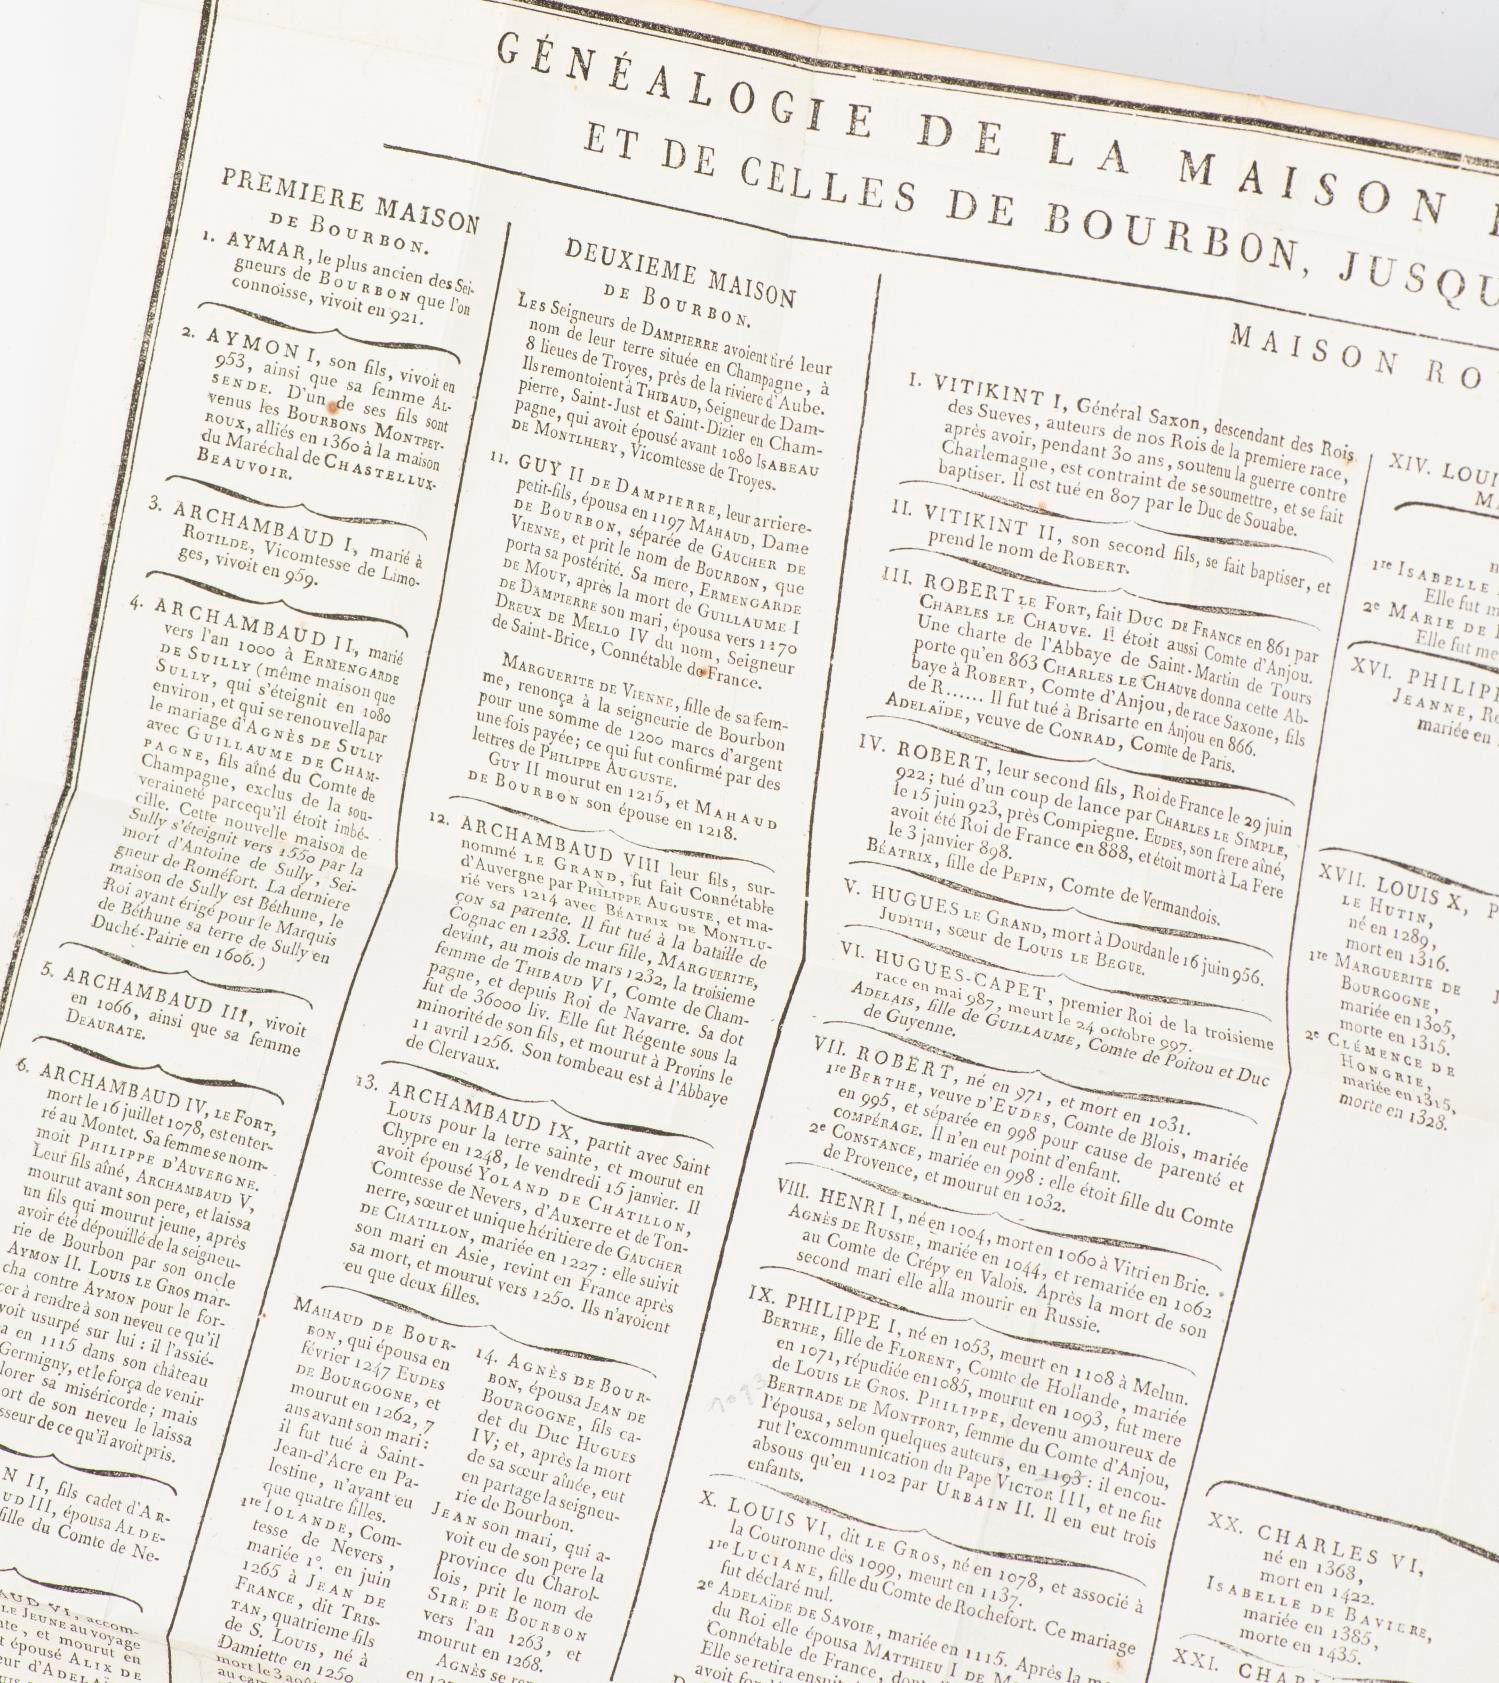 GÉNÉALOGIE DE LA MAISON
ET DE CELLES DE BOURBON, JUSQU
PREMIERE MAISON
DE BOURBON.
1. AYMAR, le plus ancien des Sei-
gneurs de BOURBON que l'on
connoisse, vivoit en 921.
2. AYMON I, son fils, vivoit en
953, ainsi que sa femme AL-
SENDE. D'un de ses fils sont
venus les BOURBONS MONTPEY-
ROUX, alliés en 1360 à la maison
du Maréchal de CHASTELLUX-
BEAUVOIR.
3. ARCHAMBAUD I, marié à
ROTILDE, Vicomtesse de Limo-
ges, vivoit en 959.
4. ARCHAMBAUD II, marié
vers l'an 1000 à ERMENGARDE
DE SUILLY (même maison que
SULLY, qui s'éteignit en 1080
environ, et qui se renouvella par
le mariage d'AGNÈS DE SULLY
avec GUILLAUME DE CHAM-
PAGNE, fils aîné du Comte de
Champagne, exclus de la sou-
veraineté parcequ'il étoit imbé-
cille. Cette nouvelle maison de
Sully s'éteignit vers 1550 par la
mort d'Antoine de Sully, Sei-
gneur de Roméfort. La derniere
maison de Sully est Béthune, le
Roi ayant érigé pour le Marquis
de Béthune sa terre de Sully en
Duché-Pairie en 1606.)
5. ARCHAMBAUD III, vivoit
en 1066, ainsi que sa femme
DEAURATE.
6. ARCHAMBAUD IV, LE FORT,
mort le 16 juillet 1078, est enter-
ré au Montet. Sa femme se nom-
moit PHILIPPE D'AUVERGNE.
Leur fils aîné, ARCHAMBAUD V,
mourut avant son pere, et laissa
un fils qui mourut jeune, après
avoir été dépouillé de la seigneu-
rie de Bourbon par son oncle
AYMON II. LOUIS LE GROS mar-
cha contre AYMON pour le for-
cer à rendre à son neveu ce qu'il
voit usurpé sur lui : il l'assié-
a en 1115 dans son château
Germigny, et le força de venir
lorer sa miséricorde ; mais
ort de son neveu le laissa
sseur de ce qu'il avoit pris.
N II, fils cadet d'AR-
UD III, épousa ALDE-
fille du Comte de Ne-
AUD VI, accom-
LE JEUNE au voyage
te, et mourut en
t épousé ALIX DE
eur d'ADELA
DEUXIEME MAISON
DE BOURBON.
LES Seigneurs de DAMPIERRE avoient tiré leur
nom de leur terre située en Champagne, à
8 lieues de Troyes, près de la riviere d'Aube.
Ils remontoient à THIBAUD, Seigneur de Dam-
pierre, Saint-Just et Saint-Dizier en Cham-
pagne, qui avoit épousé avant 1080 ISABEAU
DE MONTLHERY, Vicomtesse de Troyes.
11. GUY II DE DAMPIERRE, leur arriere-
petit-fils, épousa en 1197 MAHAUD, Dame
DE BOURBON, séparée de GAUCHER DE
VIENNE, et prit le nom de BOURBON, que
porta sa postérité. Sa mere, ERMENGARDE
DE MOUY, après la mort de GUILLAUME I
DE DAMPIERRE son mari, épousa vers 1170
DREUX DE MELLO IV du nom, Seigneur
de Saint-Brice, Connétable de France.
MARGUERITE DE VIENNE, fille de sa fem-
me, renonça à la seigneurie de Bourbon
pour une somme de 1200 marcs d'argent
une fois payée ; ce qui fut confirmé par des
lettres de PHILIPPE AUGUSTE.
GUY II mourut en 1215, et MAHAUD
DE BOURBON son épouse en 1218.
12. ARCHAMBAUD VIII leur fils, sur-
nommé LE GRAND, fut fait Connétable
d'Auvergne par PHILIPPE AUGUSTE, et ma-
rié vers 1214 avec BÉATRIX DE MONTLU-
ÇON sa parente. Il fut tué à la bataille de
Cognac en 1238. Leur fille, MARGUERITE,
devint, au mois de mars 1232, la troisieme
femme de THIBAUD VI, Comte de Cham-
pagne, et depuis Roi de Navarre. Sa dot
fut de 36000 liv. Elle fut Régente sous la
minorité de son fils, et mourut à Provins le
11 avril 1256. Son tombeau est à l'Abbaye
de Clervaux.
13. ARCHAMBAUD IX, partit avec Saint
LOUIS pour la terre sainte, et mourut en
Chypre en 1248, le vendredi 15 janvier. Il
avoit épousé YOLAND DE CHATILLON,
Comtesse de Nevers, d'Auxerre et de Ton-
nerre, sœur et unique héritiere de GAUCHER
DE CHATILLON, mariée en 1227 : elle suivit
son mari en Asie, revint en France après
sa mort, et mourut vers 1250. Ils n'avoient
eu que deux filles.
MAHAUD DE BOUR-
BON, qui épousa en
février 1247 EUDES
DE BOURGOGNE, et
mourut en 1262, 7
ans avant son mari :
il fut tué à Saint-
Jean-d'Acre en Pa-
lestine, n'ayant eu
que quatre filles.
1re IOLANDE, Com-
tesse de Nevers,
mariée 1º. en juin
1265 à JEAN DE
FRANCE, dit TRIS-
TAN, quatrieme fils
de S. LOUIS, né à
Damiette en 1250
mort le 3 aoû
au ca
14. AGNÈS DE BOUR-
BON, épousa JEAN DE
BOURGOGNE, fils ca-
det du Duc HUGUES
IV ; et, après la mort
de sa sœur aînée, eut
en partage la seigneu-
rie de Bourbon.
JEAN son mari, qui a-
voit eu de son pere la
province du Charol-
lois, prit le nom de
SIRE DE BOURBON
vers l'an 1263, et
mourut en 1268.
AGNÈS se re
en 12
MAISON RO
I. VITIKINT I, Général Saxon, descendant des Rois
des Sueves, auteurs de nos Rois de la premiere race,
après avoir, pendant 30 ans, soutenu la guerre contre
Charlemagne, est contraint de se soumettre, et se fait
baptiser. Il est tué en 807 par le Duc de Souabe.
II. VITIKINT II, son second fils, se fait baptiser, et
prend le nom de ROBERT.
III. ROBERT LE FORT, fait DUC DE FRANCE en 861 par
CHARLES LE CHAUVE. Il étoit aussi Comte d'Anjou.
Une charte de l'Abbaye de Saint-Martin de Tours
porte qu'en 863 CHARLES LE CHAUVE donna cette Ab-
baye à ROBERT, Comte d'Anjou, de race Saxone, fils
de R...... Il fut tué à Brisarte en Anjou en 866.
ADELAÏDE, veuve de CONRAD, Comte de Paris.
IV. ROBERT, leur second fils, Roi de France le 29 juin
922 ; tué d'un coup de lance par CHARLES LE SIMPLE,
le 15 juin 923, près Compiegne. EUDES, son frere aîné,
avoit été Roi de France en 888, et étoit mort à La Fere
le 3 janvier 898.
BÉATRIX, fille de PEPIN, Comte de Vermandois.
V. HUGUES LE GRAND, mort à Dourdan le 16 juin 956.
JUDITH, sœur de LOUIS LE BEGUE.
VI. HUGUES-CAPET, premier Roi de la troisieme
race en mai 987, meurt le 24 octobre 997.
ADELAIS, fille de GUILLAUME, Comte de Poitou et Duc
de Guyenne.
VII. ROBERT, né en 971, et mort en 1031.
1re BERTHE, veuve d'EUDES, Comte de Blois, mariée
en 995, et séparée en 998 pour cause de parenté et
COMPÉRAGE. Il n'en eut point d'enfant.
2e CONSTANCE, mariée en 998 : elle étoit fille du Comte
de Provence, et mourut en 1032.
VIII. HENRI I, né en 1004, mort en 1060 à Vitri en Brie.
AGNÈS DE RUSSIE, mariée en 1044, et remariée en 1062
au Comte de Crépy en Valois. Après la mort de son
second mari elle alla mourir en Russie.
IX. PHILIPPE I, né en 1053, meurt en 1108 à Melun.
BERTHE, fille de FLORENT, Comte de Hollande, mariée
en 1071, répudiée en 1085, mourut en 1093, fut mere
de LOUIS LE GROS. PHILIPPE, devenu amoureux de
BERTRADE DE MONTFORT, femme du Comte d'Anjou,
l'épousa, selon quelques auteurs, en 1193 : il encou-
rut l'excommunication du Pape VICTOR III, et ne fut
absous qu'en 1102 par URBAIN II. Il en eut trois
enfants.
1093
X. LOUIS VI, dit LE GROS, né en 1078, et associé à
la Couronne dès 1099, meurt en 1137.
1re LUCIANE, fille du Comte de Rochefort. Ce mariage
fut déclaré nul.
2e ADELAÏDE DE SAVOIE, mariée en 1115. Après la m
du Roi elle épousa MATTHIEU I DE M
Connétable de France, dont
Elle se retira ensuit
avoit fo
XIV. LOUI
MA
1re ISABELLE
Elle fut m
2e MARIE DE
Elle fut me
XVI. PHILIPP
JEANNE, R
mariée en
XVII. LOUIS X,
LE HUTIN,
né en 1289,
mort en 1316.
1re MARGUERITE DE
BOURGOGNE,
mariée en 1305,
morte en 1315.
2e CLÉMENCE DE
HONGRIE,
mariée en 1315,
morte en 1328.
XX. CHARLES VI,
né en 1368,
mort en 1422.
ISABELLE DE BAVIERE,
mariée en 1385,
morte en 1435.
XXI. CHARL